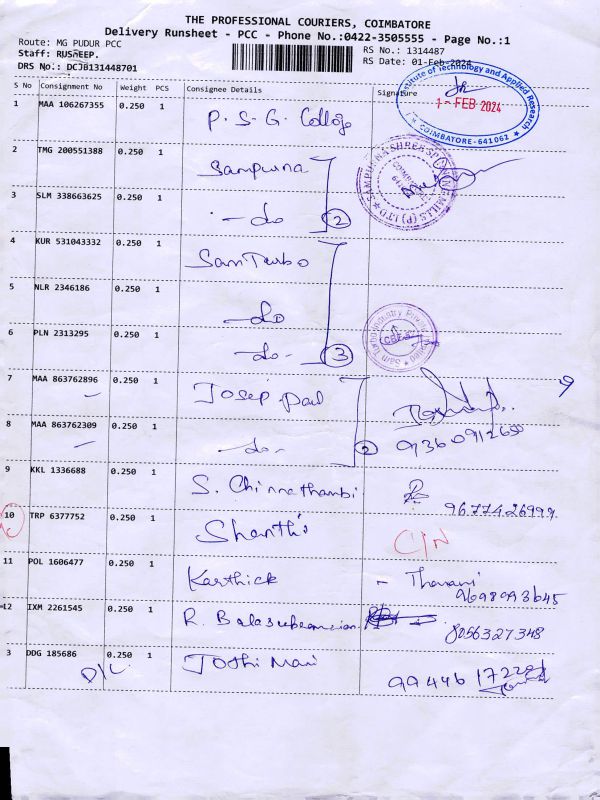 THE PROFESSIONAL COURIERS, COIMBATORE
Delivery Runsheet - PCC - Phone No.:0422-3505555 - Page No.:1
Route: MG PUDUR PCC
RS No.: 1314487
Staff: RUSHEEP.
RS Date: 01-Feb-2024
DRS No.: DCJB131448701
S No Consignment No Weight PCS Consignee Details Signature
Institute of Technology and Applied Research
1 - FEB 2024
COIMBATORE - 641062
1 MAA 106267355 0.250 1 P. S. G. College
2 TMG 200551388 0.250 1 Sampurna
MILLS (P) LTD
3 SLM 338663625 0.250 1 - do 2
4 KUR 531043332 0.250 1 Sam Turbo
5 NLR 2346186 0.250 1 - do
Sam Turbo Industry Private Limited
6 PLN 2313295 0.250 1 - do - 3
7 MAA 863762896 0.250 1 Josep Paul
8 MAA 863762309 0.250 1 - do - 2
9 KKL 1336688 0.250 1 S. Chinnathambi
10 TRP 6377752 0.250 1 Shanthi C/N
11 POL 1606477 0.250 1 Karthick - Tharani
9698993645
12 IXM 2261545 0.250 1 R. Balasubramaian
8056327348
3 DDG 185686 0.250 1 Jothi Mani
D/C